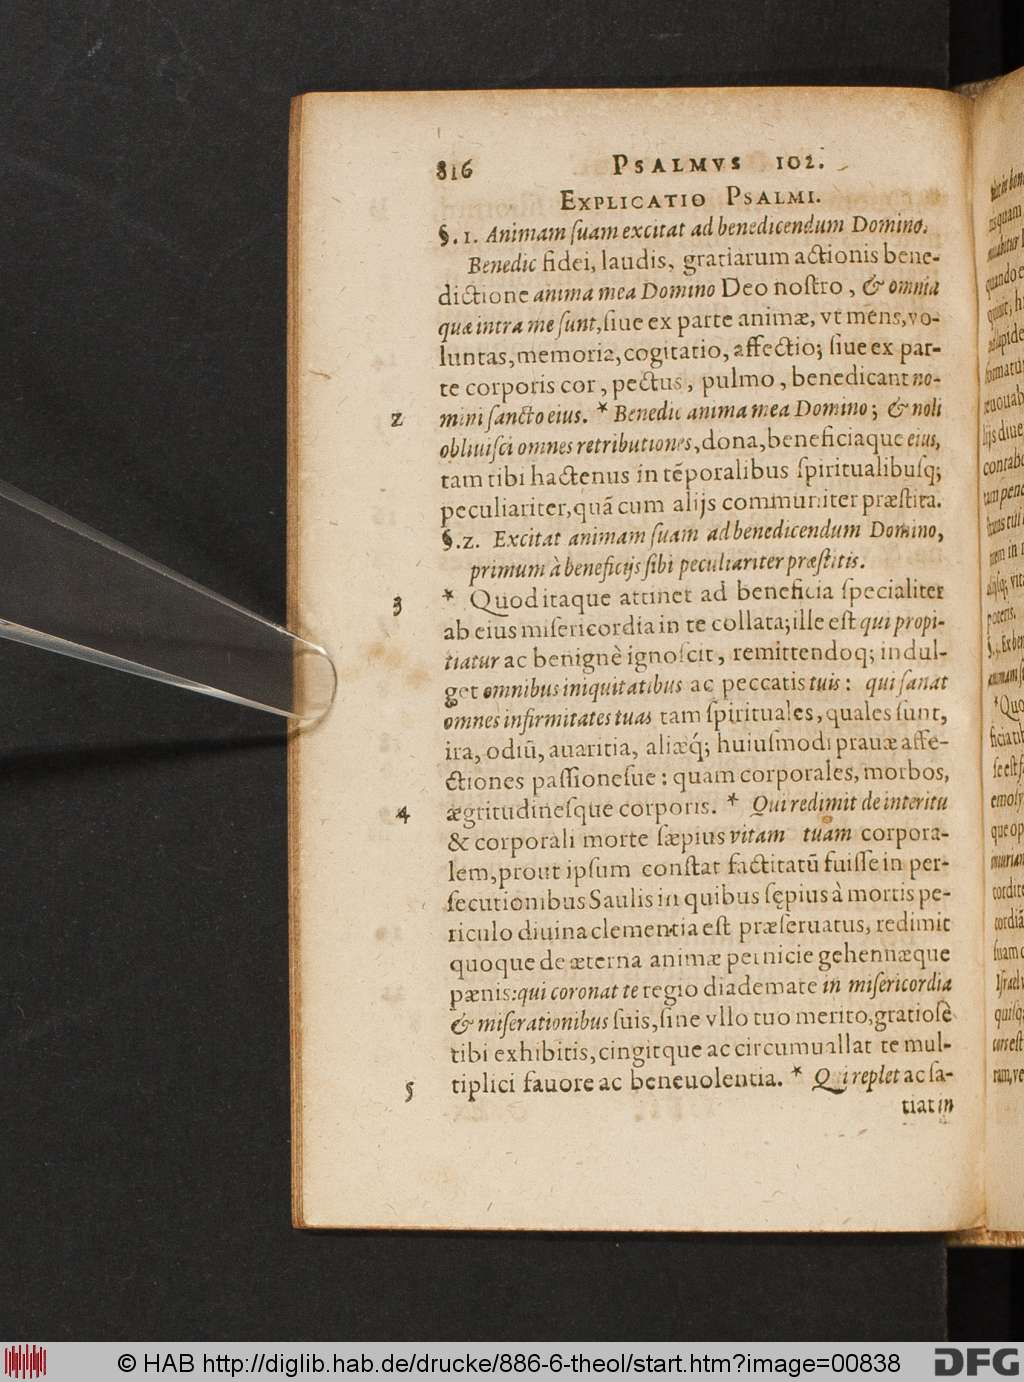 816 PSALMVS 102.
EXPLICATIO PSALMI.
§.1. Animam ſuam excitat ad benedicendum Domino.
Benedic fidei, laudis, gratiarum actionis bene-
dictione anima mea Domino Deo noſtro, & omnia
quæ intra me ſunt, ſiue ex parte animæ, vt mens, vo-
luntas, memoria, cogitatio, affectio; ſiue ex par-
te corporis cor, pectus, pulmo, benedicant no-
2 mini ſancto eius. * Benedic anima mea Domino; & noli
obliuiſci omnes retributiones, dona, beneficiaque eius,
tam tibi hactenus in tẽporalibus ſpiritualibuſq;
peculiariter, quã cum alijs communiter præſtita.
§.2. Excitat animam ſuam ad benedicendum Domino,
primum à beneficijs ſibi peculiariter præſtitis.
3 * Quod itaque attinet ad beneficia ſpecialiter
ab eius miſericordia in te collata; ille eſt qui propi-
tiatur ac benignè ignoſcit, remittendoq; indul-
get omnibus iniquitatibus ac peccatis tuis: qui ſanat
omnes infirmitates tuas tam ſpirituales, quales ſunt,
ira, odiũ, auaritia, aliæq́; huiuſmodi prauæ affe-
ctiones paſſioneſue: quam corporales, morbos,
4 ægritudineſque corporis. * Qui redimit de interitu
& corporali morte ſæpius vitam tuam corpora-
lem, prout ipſum conſtat factitatũ fuiſſe in per-
ſecutionibus Saulis in quibus ſępius à mortis pe-
riculo diuina clementia eſt præſeruatus, redimit
quoque de æterna animæ pernicie gehennæque
pænis: qui coronat te regio diademate in miſericordia
& miſerationibus ſuis, ſine vllo tuo merito, gratioſè
tibi exhibitis, cingitque ac circumuallat te mul-
5 tiplici fauore ac beneuolentia. * Qui replet ac ſa-
tiat in
© HAB http://diglib.hab.de/drucke/886-6-theol/start.htm?image=00838
DFG